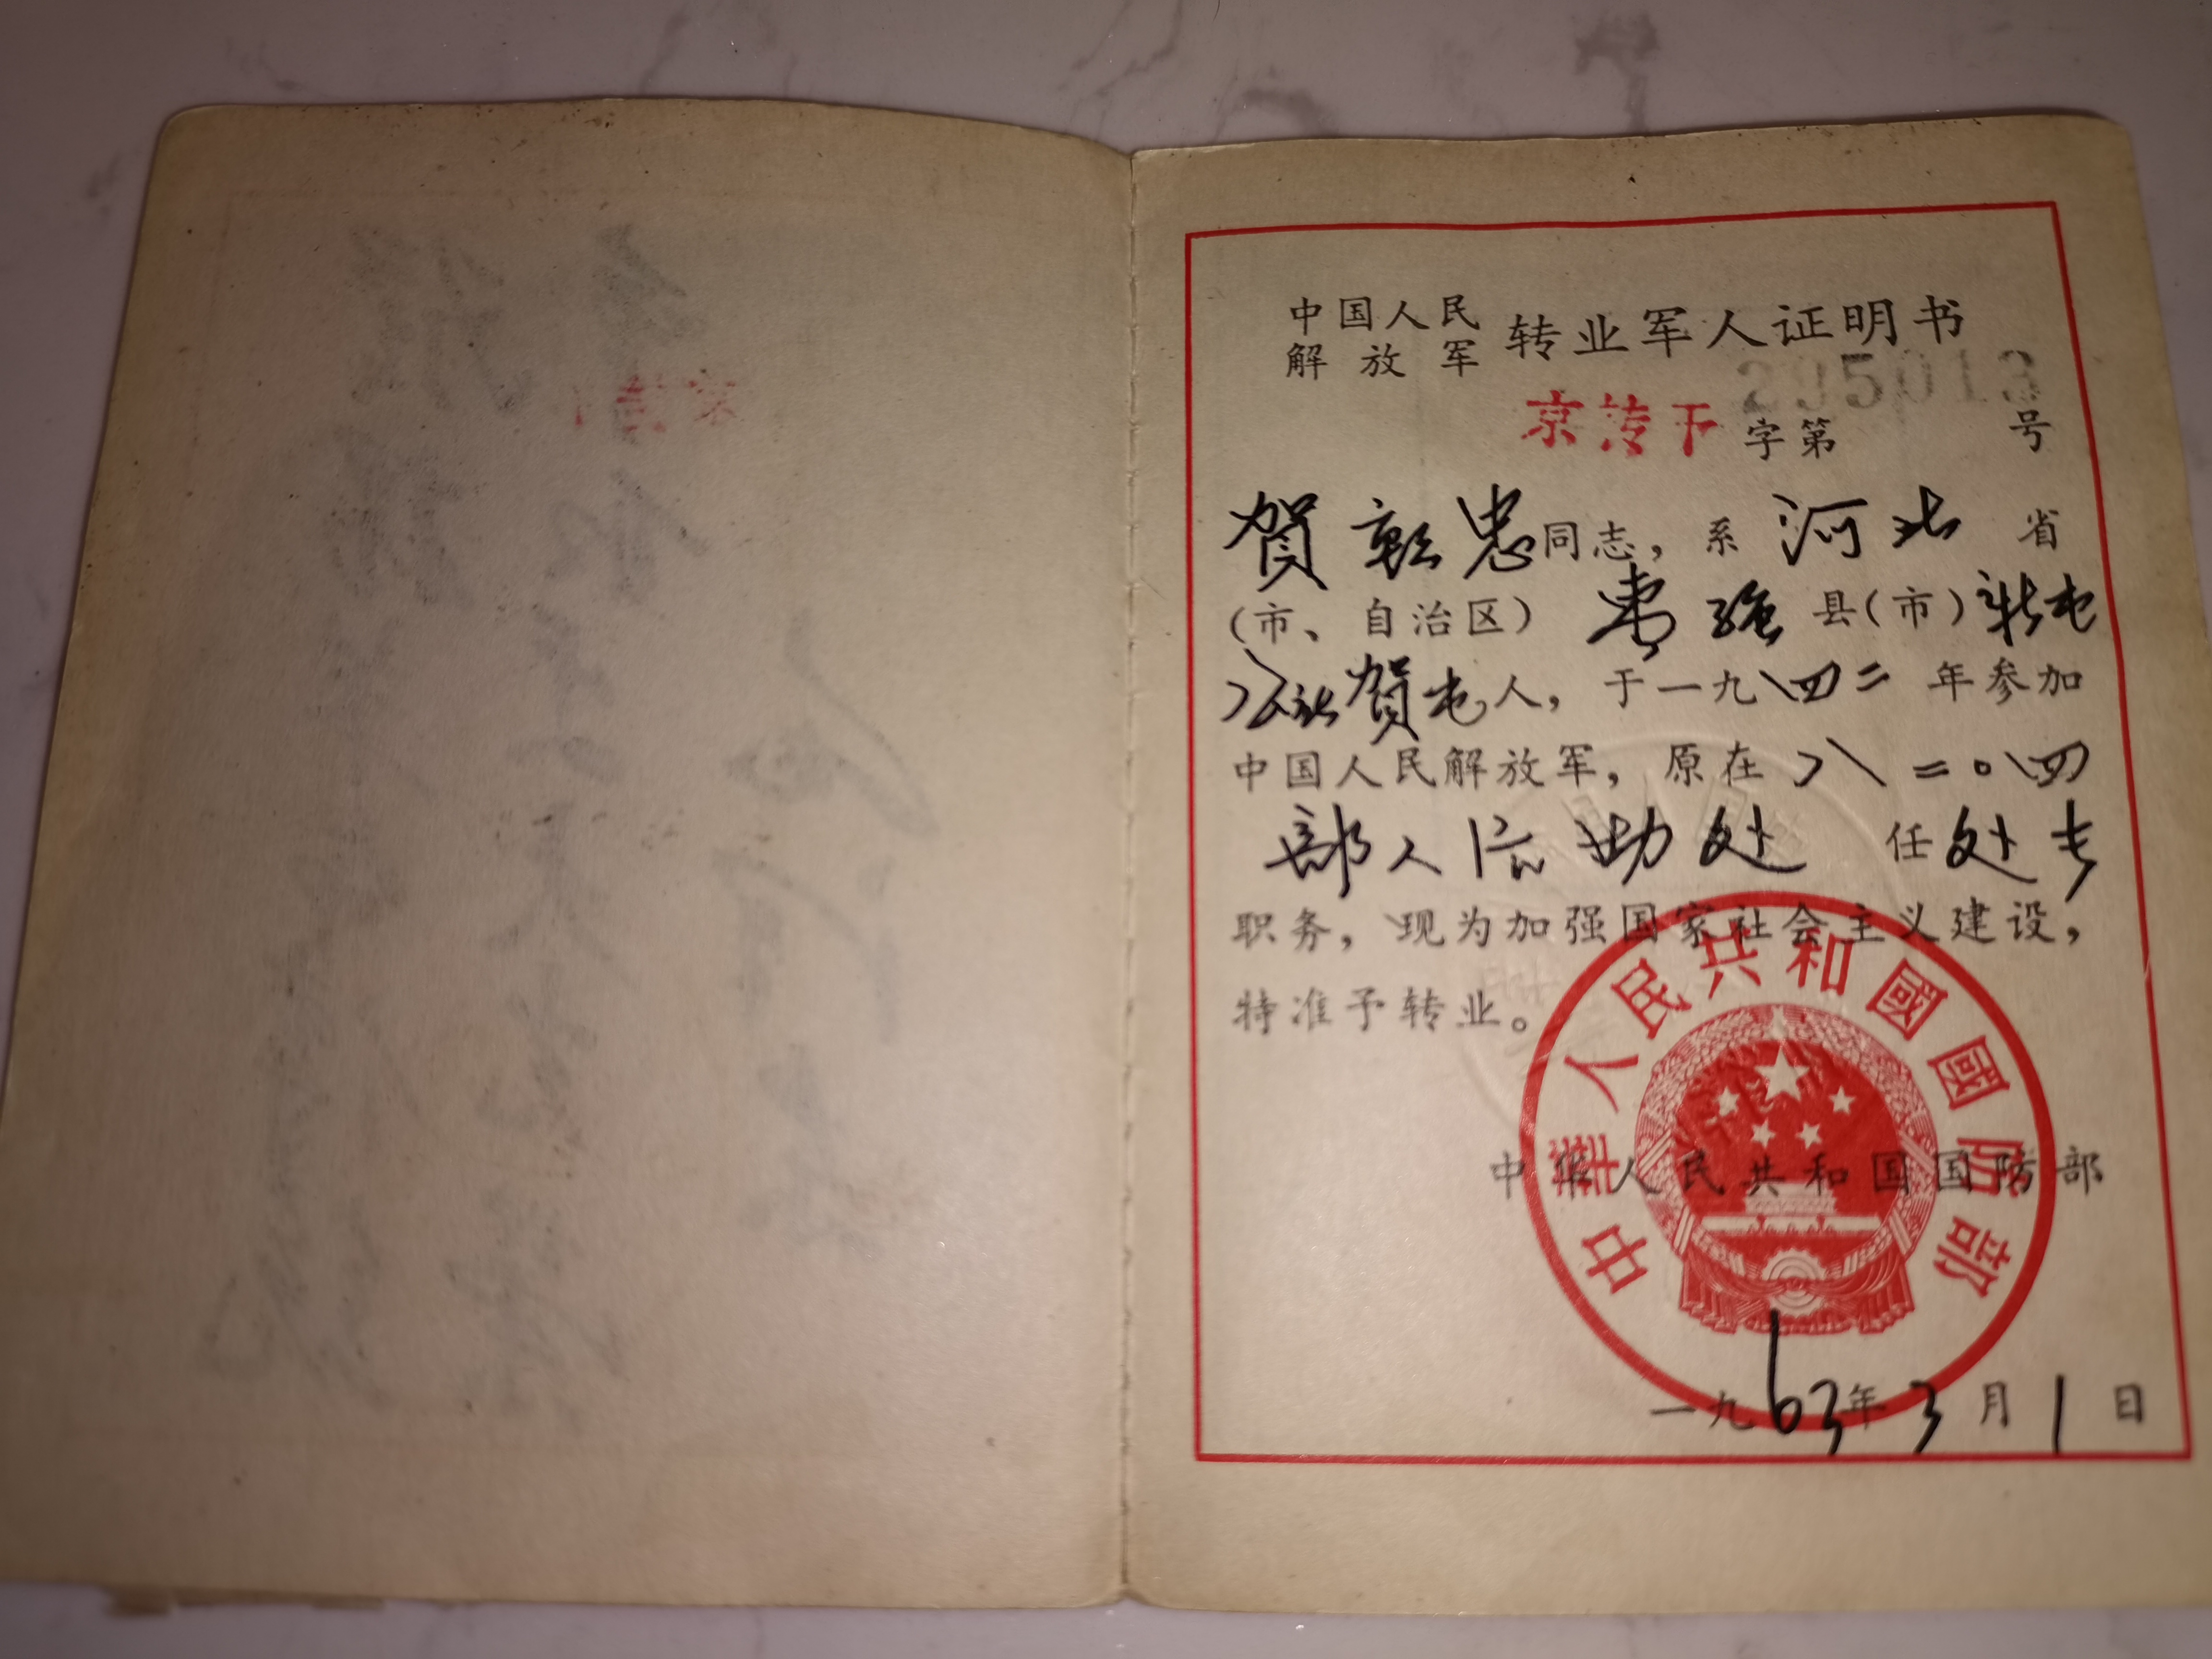 中国人民
解放军 转业军人证明书
京转干字第295013号
贺 忠同志，系河北省
（市、自治区）枣强县（市）新屯
公社贺屯人，于一九四二年参加
中国人民解放军，原在八二〇四
部人 处任处长
职务，现为加强国家社会主义建设，
特准予转业。
中华人民共和国国防部
中华人民共和國國防部
一九63年3月1日